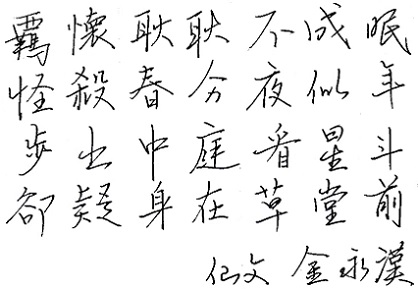 羈懷耿耿不成眠
怪殺春分夜似年
步出中庭看星斗
卻疑身在草堂前
仁文 金永漢